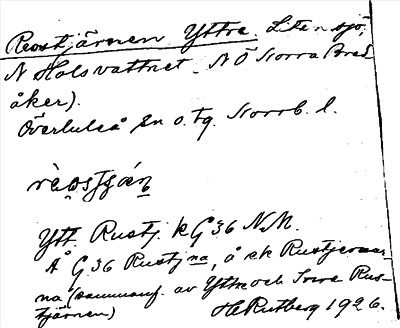 Reostjärnen Yttre. Liten sjö,
N Holsvattnet. N Ö Norra Bred
åker).
Överluleå sn o. tg. Norrb. l.
Ytt. Rustj. k G 36 N.M.
Å G 36 Rustjna, å ek Rustjernar-
na (sammanf. av Yttre och Inre Rus-
tjärnen) H Rutberg 1926.